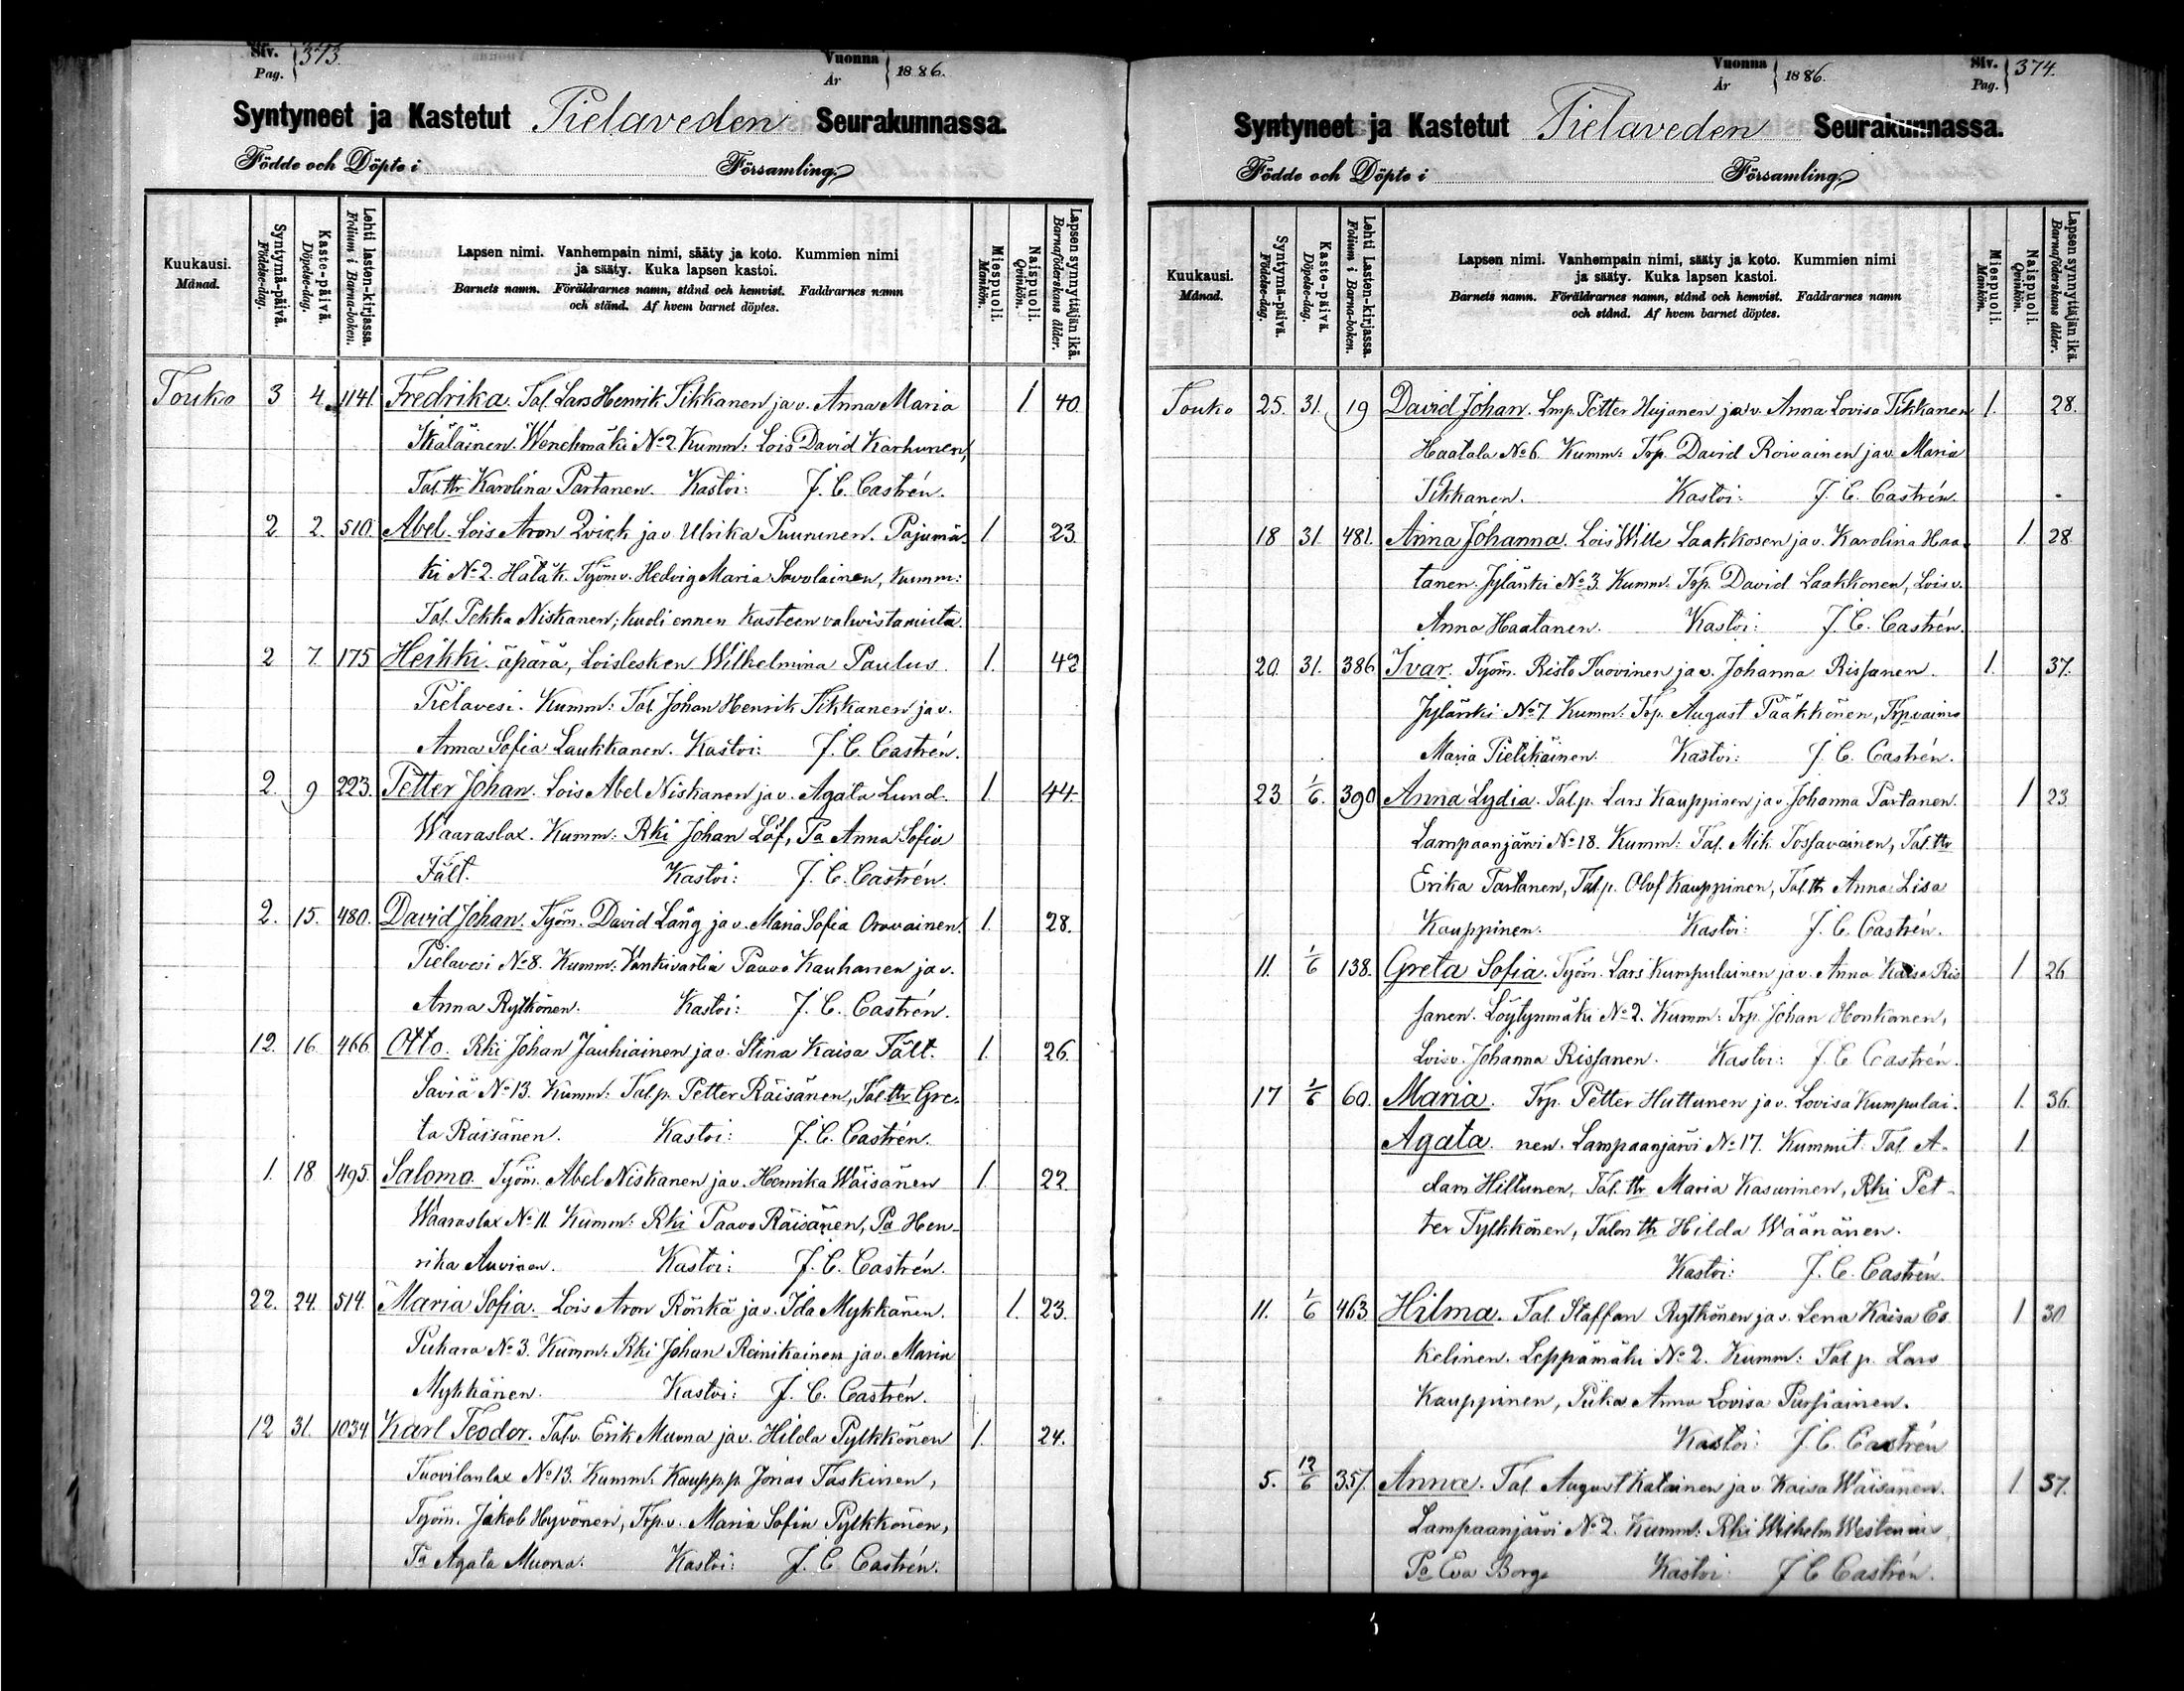 Siv. Pag. 373.
Vuonna År 1886.
Syntyneet ja Kastetut Pielaveden Seurakunnassa.
Födde och Döpte i Församling.
Kuukausi. Månad.
Syntymä-päivä. Födelse-dag.
Kaste-päivä. Döpelse-dag.
Lehti lasten-kirjassa. Folium i Barna-boken.
Lapsen nimi. Vanhempain nimi, sääty ja koto. Kummien nimi
ja sääty. Kuka lapsen kastoi.
Barnets namn. Föräldrarnes namn, stånd och hemvist. Faddrarnes namn
och stånd. Af hvem barnet döptes.
Miespuoli. Mankön.
Naispuoli. Qvinkön.
Lapsen synnyttäjän ikä. Barnaföderskans ålder.
Touko 3 4. 1141. Fredrika. Tal. Lars Henrik Tikkanen ja v. Anna Maria 1. 40.
Ikäläinen. Wenehmäki No 2. Kumm: Lois David Karhunen,
Tal. ttr Karolina Partanen. Kastoi: J. C. Castrén.
2 2. 510. Abel. Lois Aron Qvick ja v. Ulrika Puuninen. Pajumä- 1 23
ki No 2. Hätäk. Työmv. Hedvig Maria Savolainen, Kumm:
Tal. Pekka Niskanen; kuoli ennen kasteen vahvistamista.
2 7. 175 Heikki. äpärä, Loislesken Wilhelmina Paulus. 1. 42
Pielavesi. Kumm: Tal. Johan Henrik Tikkanen ja v.
Anna Sofia Laukkanen. Kastoi: J. C. Castrén.
2. 9 223. Petter Johan. Lois Abel Niskanen ja v. Agata Lund. 1. 44.
Waaraslax. Kumm: Rki Johan Löf, Pa Anna Sofia
Fält. Kastoi: J. C. Castrén.
2. 15. 480. David Johan. Työm. David Lång ja v. Maria Sofia Oravainen. 1. 28.
Pielavesi No 8. Kumm: Vankivartia Paavo Kauhanen ja v.
Anna Rytkönen. Kastoi: J. C. Castrén.
12. 16 466. Otto. Rki Johan Jauhiainen ja v. Stina Kaisa Fält. 1. 26.
Saviä No 13. Kumm: Tal.p. Petter Räisänen, Tal. ttr Gre-
ta Räisänen. Kastoi: J. C. Castrén.
1. 18 495. Salomo. Työm. Abel Niskanen ja v. Henrika Wäisänen 1. 22.
Waaraslax No 11. Kumm: Rki Paavo Räisänen, Pa Hen-
rika Auvinen. Kastoi: J. C. Castrén.
22. 24. 514. Maria Sofia. Lois Aron Rönkä ja v. Ida Mykkänen. 1. 23.
Puhara No 3. Kumm: Rki Johan Reinikainen ja v. Maria
Mykkänen. Kastoi: J. C. Castrén.
12 31. 1034. Karl Teodor. Talv. Erik Muona ja v. Hilda Pylkkönen 1. 24.
Tuovilanlax No 13. Kumm: Kaupp.p. Jonas Taskinen,
Työm. Jakob Hyvönen, Trp.v. Maria Sofia Pylkkönen,
Pa Agata Muona. Kastoi: J. C. Castrén.
Vuonna År 1886.
Siv. Pag. 374.
Syntyneet ja Kastetut Pielaveden Seurakunnassa.
Födde och Döpte i Församling.
Kuukausi. Månad.
Syntymä-päivä. Födelse-dag.
Kaste-päivä. Döpelse-dag.
Lehti Lasten-kirjassa. Folium i Barna-boken.
Lapsen nimi. Vanhempain nimi, sääty ja koto. Kummien nimi
ja sääty. Kuka lapsen kastoi.
Barnets namn. Föräldrarnes namn, stånd och hemvist. Faddrarnes namn
och stånd. Af hvem barnet döptes.
Miespuoli. Mankön.
Naispuoli. Qvinkön.
Lapsen synnyttäjän ikä. Barnaföderskans ålder.
Touko 25. 31. 19 David Johan. Lmp. Petter Hujanen ja v. Anna Lovisa Tikkanen 1. 28.
Haatala No 6. Kumm: Trp. David Roivainen ja v. Maria
Tikkanen. Kastoi: J. C. Castrén.
18 31. 481. Anna Johanna. Lois Wille Laakkosen ja v. Karolina Haa- 1. 28.
tanen. Jylänki No 3. Kumm: Trp. David Laakkonen, Lois v.
Anna Haatanen. Kastoi: J. C. Castrén.
20. 31. 386. Ivar. Työm. Risto Tuovinen ja v. Johanna Rissanen. 1. 37.
Jylänki No 7. Kumm: Trp. August Pääkkönen, Trp.vaimo
Maria Pietikäinen. Kastoi: J. C. Castrén.
23 1/6. 390 Anna Lydia. Tal.p. Lars Kauppinen ja v. Johanna Partanen. 1 23
Lampaanjärvi No 18. Kumm: Tal. Mik. Tossavainen, Tal. ttr
Erika Partanen, Tal.p. Olof Kauppinen, Tal. ttr Anna Lisa
Kauppinen. Kastoi: J. C. Castrén.
11. 1/6 138. Greta Sofia. Työm. Lars Kumpulainen ja v. Anna Kaisa Ris 1 26
sanen. Löytynmäki No 2. Kumm: Trp. Johan Honkanen,
Lois v. Johanna Rissanen. Kastoi: J. C. Castrén.
17 1/6 60. Maria. Trp. Petter Huttunen ja v. Lovisa Kumpulai- 1. 36.
Agata. nen. Lampaanjärvi No 17. Kummit. Tal. A- 1.
dam Hiltunen, Tal. ttr Maria Kasurinen, Rki Pet-
ter Pylkkönen, Talon ttr Hilda Wäänänen.
Kastoi: J. C. Castrén.
11. 1/6 463 Hilma. Tal. Staffan Rytkönen ja v. Lena Kaisa Es 1 30
kelinen. Leppämäki No 2. Kumm: Tal p. Lars
Kauppinen, Piika Anna Lovisa Pursiainen.
Kastoi: J. C. Castrén
5. 12/6 357. Anna. Tal. August Katainen ja v. Kaisa Wäisänen. 1 37.
Lampaanjärvi No 2. Kumm: Rki Wilhelm
Pa Eva Borg Kastoi: J C Castrén.